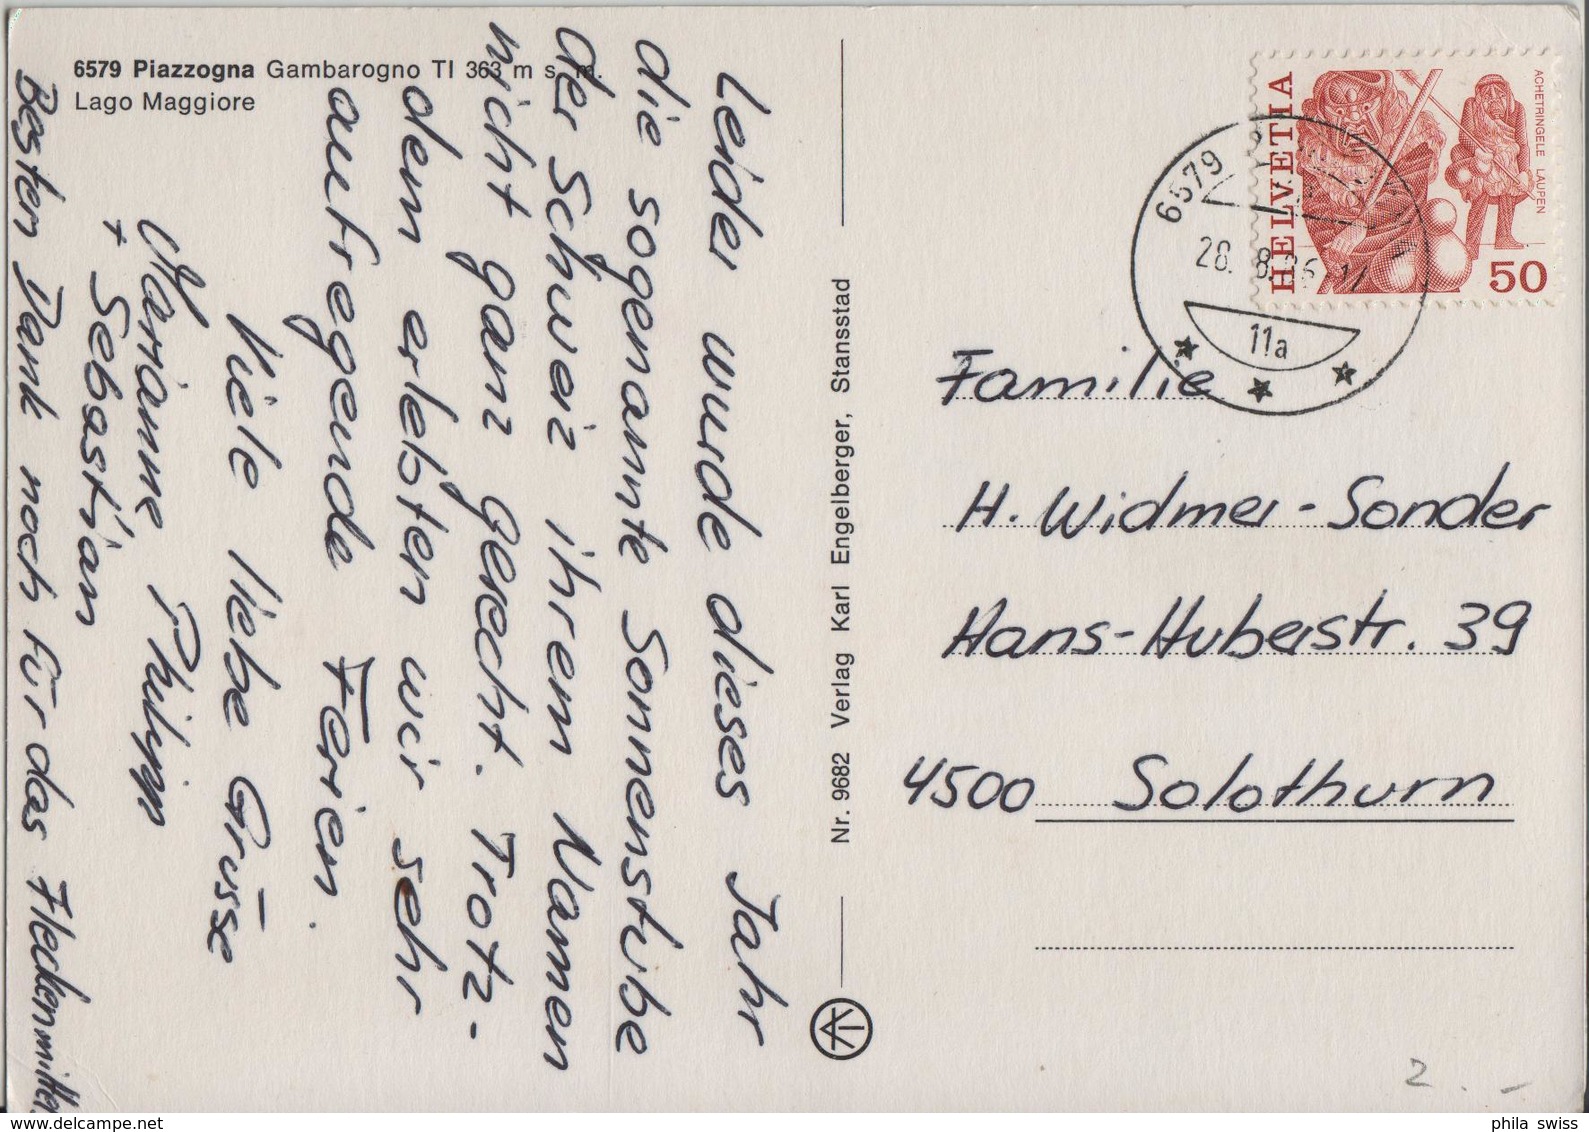 6579 Piazzogna Gambarogno TI 363 m s. m.
Lago Maggiore
Leider wurde dieses Jahr
die sogenannte Sonnenstube
der Schweiz ihrem Namen
nicht ganz gerecht. Trotz-
dem erlebten wir sehr
aufregende Ferien.
Viele liebe Grüsse
Marianne Philipp
+ Sebastian
Besten Dank noch für das Fleckenmittel.
Nr. 9682 Verlag Karl Engelberger, Stansstad
HELVETIA
ACHETRINGELE LAUPEN
50
6579
28. 8. 86
11a
Familie
H. Widmer-Sonder
Hans-Huberstr. 39
4500 Solothurn
2.-
phila swiss